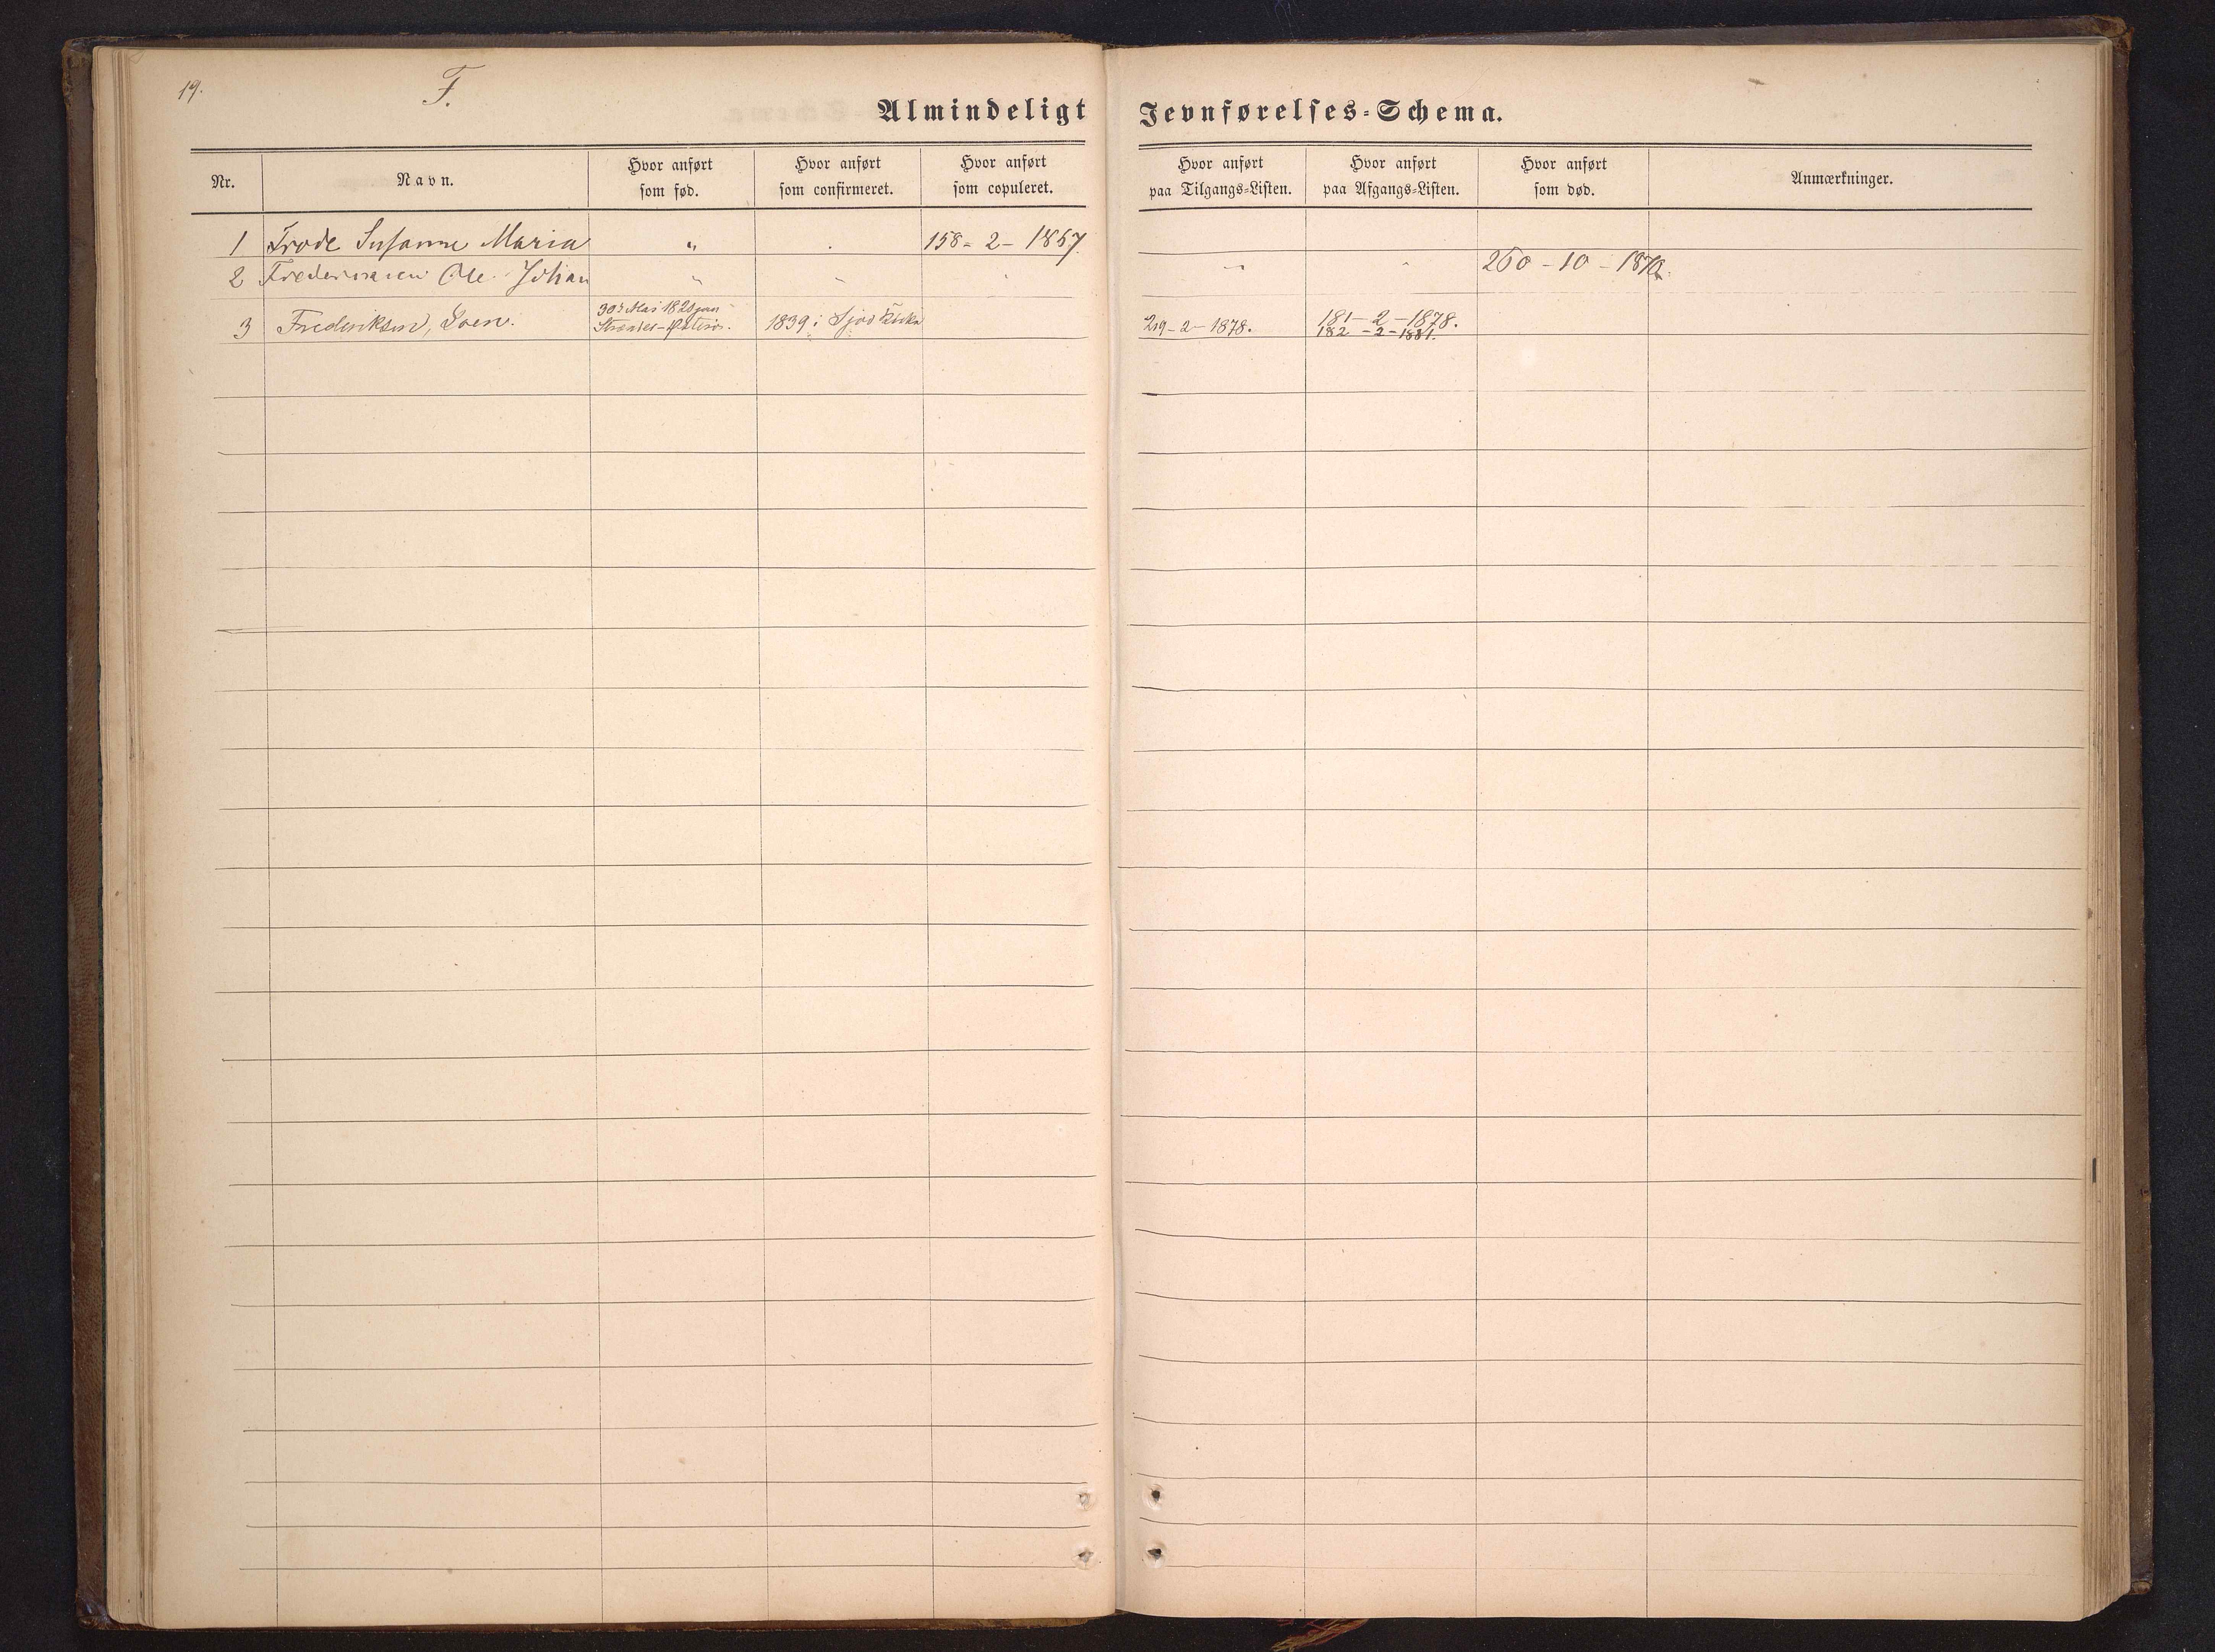 19.
F.
Almindeligt Jevnførelses-Schema.
Nr. Navn. Hvor anført som fød. Hvor anført som confirmeret. Hvor anført som copuleret. Hvor anført paa Tilgangs-Listen. Hvor anført paa Afgangs-Listen. Hvor anført som død. Anmærkninger.
1 Frode Susanne Maria " . 158- 2- 1867.
2 Ole Johan " " " " " 260 - 10 - 1870.
3 Frederiksen, Soen. 30te Mai 1839 i 219-2-1878. 181-2-1878.
182-2-1881.